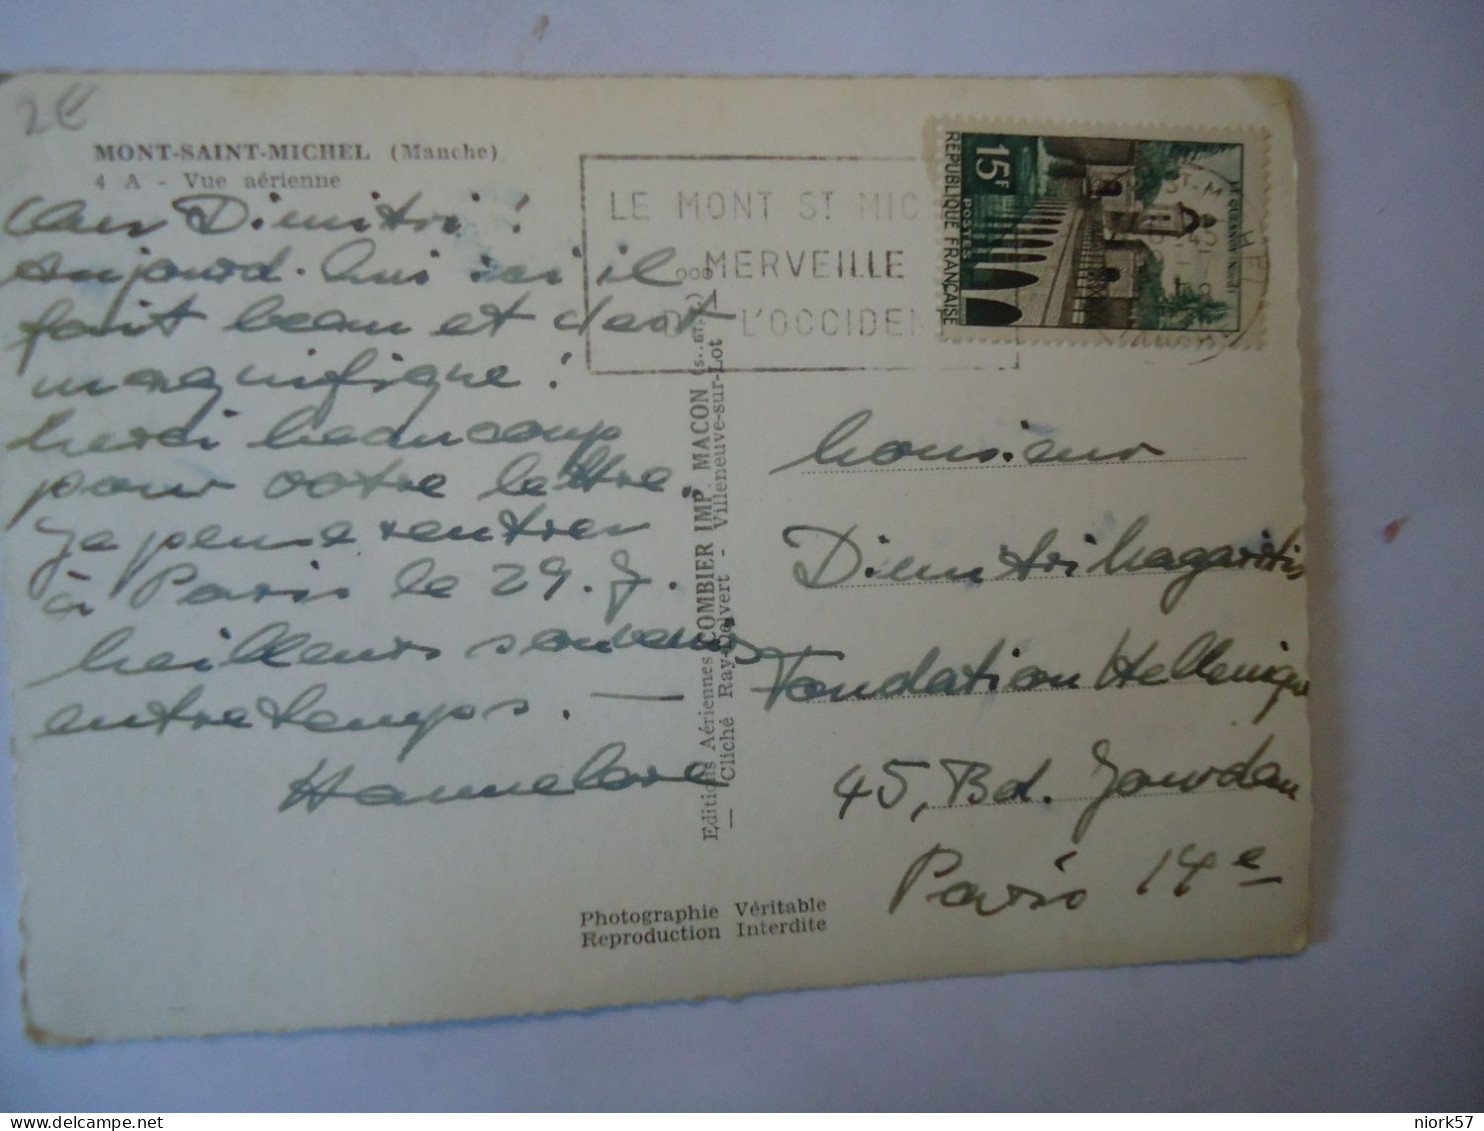 2€
MONT-SAINT-MICHEL (Manche)
4 A - Vue aérienne
Cher Dimitri!
Aujourd'hui ici il
fait beau et c'est
magnifique!
Merci beaucoup
pour votre lettre.
Je pense rentrer
à Paris le 29. 7.
Meilleurs souvenirs
entretemps. —
Hannelore
LE MONT ST MIC
...MERVEILLE
L'OCCIDEN
15F
POSTES
REPUBLIQUE FRANÇAISE
LE QUESNOY NORD
Monsieur
Dimitri
Fondation Hellenique
45, Bd. Jourdan
Paris 14e
Editions Aériennes COMBIER IMP. MACON
— Cliché Ray-Delvert - Villeneuve-sur-Lot —
Photographie Véritable
Reproduction Interdite
niork57